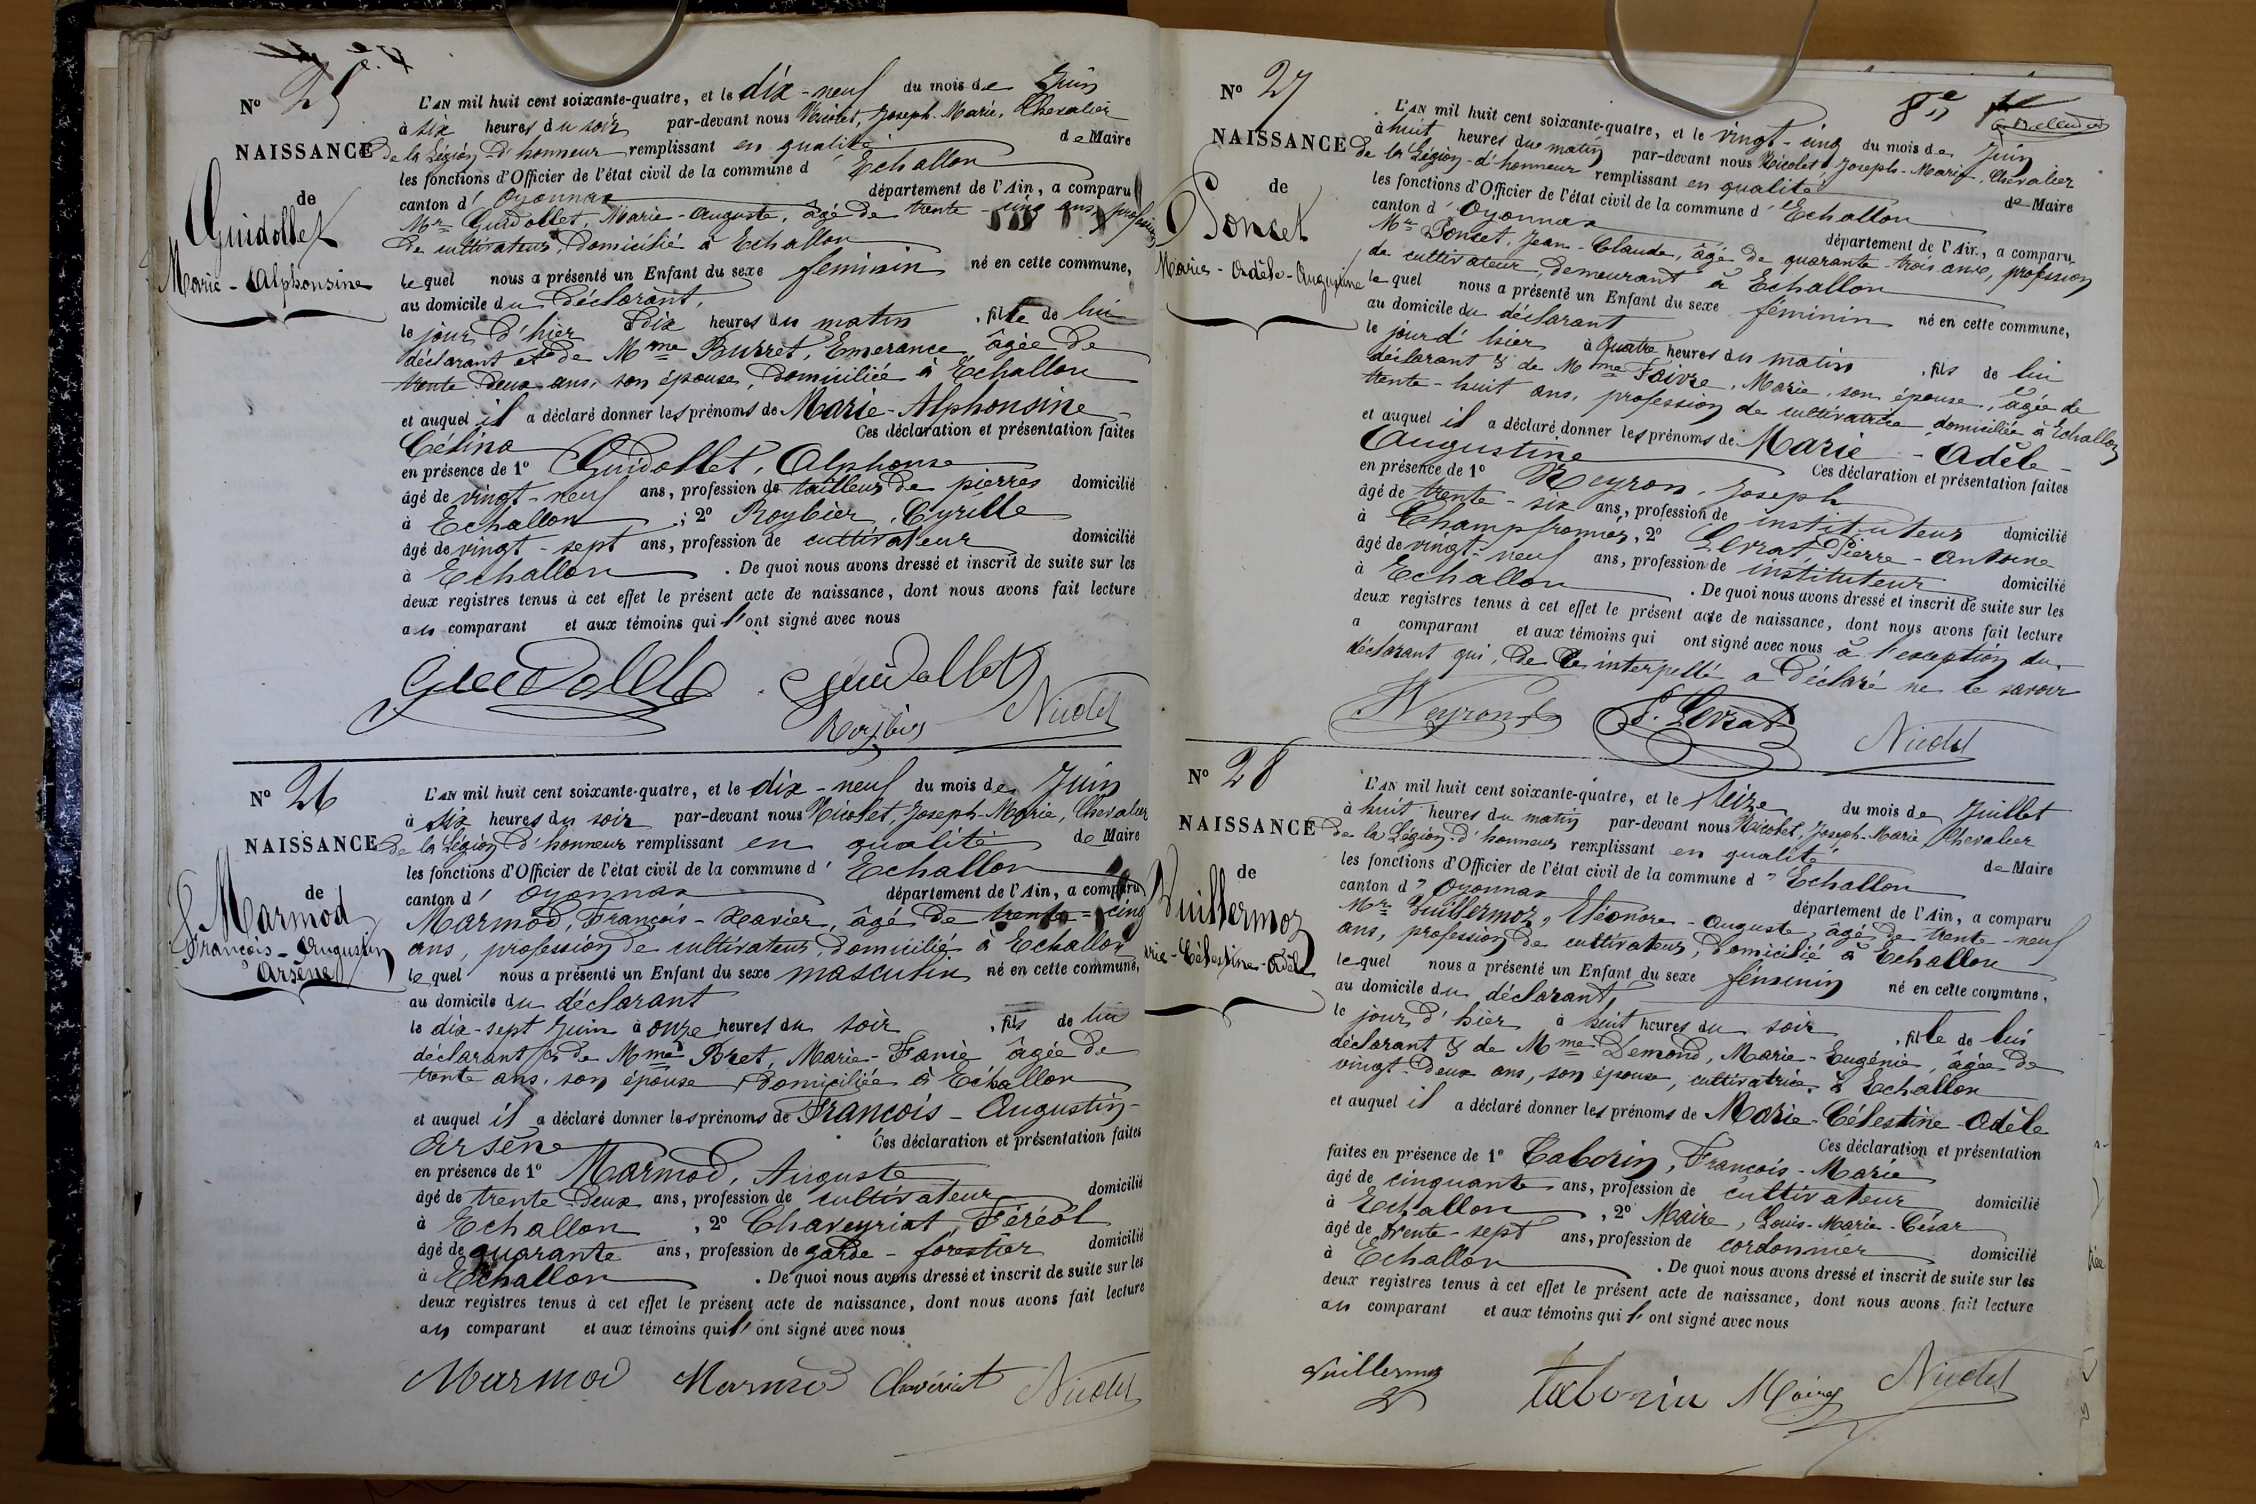 7.e
N° 25
NAISSANCE
de
Guidollet
Marie-Alphonsine
L'AN mil huit cent soixante-quatre, et le dix-neuf du mois de Juin
à six heures du soir par-devant nous Nicolet, Joseph-Marie, Chevalier
de la Légion d'honneur remplissant en qualité de Maire
les fonctions d'Officier de l'état civil de la commune d' Echallon
canton d' Oyonnax département de l'Ain, a comparu
Mr Guidollet, Marie-Auguste, âgé de trente-cinq ans, profession
de cultivateur, domicilié à Echallon
lequel nous a présenté un Enfant du sexe féminin né en cette commune,
au domicile du déclarant,
le jour d'hier à dix heures du matin, fille de lui
déclarant et de Mme Burret, Emerance âgée de
trente deux ans, son épouse, domiciliée à Echallon
et auquel il a déclaré donner les prénoms de Marie-Alphonsine
Célina Ces déclaration et présentation faites
en présence de 1° Guidollet, Alphonse
âgé de vingt-neuf ans, profession de tailleur de pierres domicilié
à Echallon ; 2° Roybier, Cyrille
âgé de vingt-sept ans, profession de cultivateur domicilié
à Echallon . De quoi nous avons dressé et inscrit de suite sur les
deux registres tenus à cet effet le présent acte de naissance, dont nous avons fait lecture
au comparant et aux témoins qui l'ont signé avec nous
Guidollet Guidollet
Roybier Nicolet
N° 26
NAISSANCE
de
Marmod
François-Augustin
Arsène
L'AN mil huit cent soixante-quatre, et le dix-neuf du mois de Juin
à six heures du soir par-devant nous Nicolet, Joseph-Marie, Chevalier
de la Légion d'honneur remplissant en qualité de Maire
les fonctions d'Officier de l'état civil de la commune d' Echallon
canton d' Oyonnax département de l'Ain, a comparu
Marmod, François-Xavier, âgé de trente-cinq
ans, profession de cultivateur, domicilié à Echallon
lequel nous a présenté un Enfant du sexe masculin né en cette commune,
au domicile du déclarant
le dix-sept Juin à onze heures du soir, fils de lui
déclarant & de Mme Bret, Marie-Fanie âgée de
trente ans, son épouse, domiciliée à Echallon
et auquel il a déclaré donner les prénoms de François-Augustin-
Arsène Ces déclaration et présentation faites
en présence de 1° Marmod, Auguste
âgé de trente-deux ans, profession de cultivateur domicilié
à Echallon , 2° Chaveyriat, Féréol
âgé de quarante ans, profession de garde-forestier domicilié
à Echallon . De quoi nous avons dressé et inscrit de suite sur les
deux registres tenus à cet effet le présent acte de naissance, dont nous avons fait lecture
au comparant et aux témoins qui l'ont signé avec nous
Marmod Marmod Chavériat Nicolet
8e
N° 27
NAISSANCE
de
Poncet
Marie-Adèle-Augustine
L'AN mil huit cent soixante-quatre, et le vingt-cinq du mois de Juin
à huit heures du matin par-devant nous Nicolet, Joseph-Marie, Chevalier
de la Légion-d'honneur remplissant en qualité de Maire
les fonctions d'Officier de l'état civil de la commune d' Echallon
canton d' Oyonnax département de l'Ain, a comparu
Mr Poncet, Jean-Claude, âgé de quarante-trois ans, profession
de cultivateur, demeurant à Echallon
lequel nous a présenté un Enfant du sexe féminin né en cette commune,
au domicile du déclarant
le jour d'hier à quatre heures du matin, fils de lui
déclarant & de Mme Faivre, Marie, son épouse, âgée de
trente-huit ans, profession de cultivatrice, domiciliée à Echallon
et auquel il a déclaré donner les prénoms de Marie-Adèle-
Augustine Ces déclaration et présentation faites
en présence de 1° Neyron, Joseph
âgé de trente-six ans, profession de instituteur domicilié
à Champfromier, 2° Levrat, Pierre-Antoine
âgé de vingt-neuf ans, profession de instituteur domicilié
à Echallon . De quoi nous avons dressé et inscrit de suite sur les
deux registres tenus à cet effet le présent acte de naissance, dont nous avons fait lecture
a comparant et aux témoins qui ont signé avec nous à l'exception du
déclarant qui, de ce interpellé a déclaré ne le savoir
Neyron J. P. Levrat Nicolet
N° 28
NAISSANCE
de
Vuillermoz
rie-Célestine-Adèle
L'AN mil huit cent soixante-quatre, et le Seize du mois de Juillet
à huit heures du matin par-devant nous Nicolet, Joseph-Marie Chevalier
de la Légion-d'honneur remplissant en qualité de Maire
les fonctions d'Officier de l'état civil de la commune d' Echallon
canton d' Oyonnax département de l'Ain, a comparu
Mr Vuillermoz, Eléonore-Auguste, âgé de trente-neuf
ans, profession de cultivateur, domicilié à Echallon
lequel nous a présenté un Enfant du sexe féminin né en cette commune,
au domicile du déclarant,
le jour d'hier à huit heures du soir, fille de lui
déclarant & de Mme Demond, Marie-Eugénie, âgée de
vingt-deux ans, son épouse, cultivatrice à Echallon
et auquel il a déclaré donner les prénoms de Marie-Célestine-Adèle
Ces déclaration et présentation
faites en présence de 1° Taborin, François-Marie
âgé de cinquante ans, profession de cultivateur domicilié
à Echallon , 2° Maire, Louis-Marie-César
âgé de trente-sept ans, profession de cordonnier domicilié
à Echallon . De quoi nous avons dressé et inscrit de suite sur les
deux registres tenus à cet effet le présent acte de naissance, dont nous avons fait lecture
au comparant et aux témoins qui l'ont signé avec nous
Vuillermoz taborin Maire Nicolet